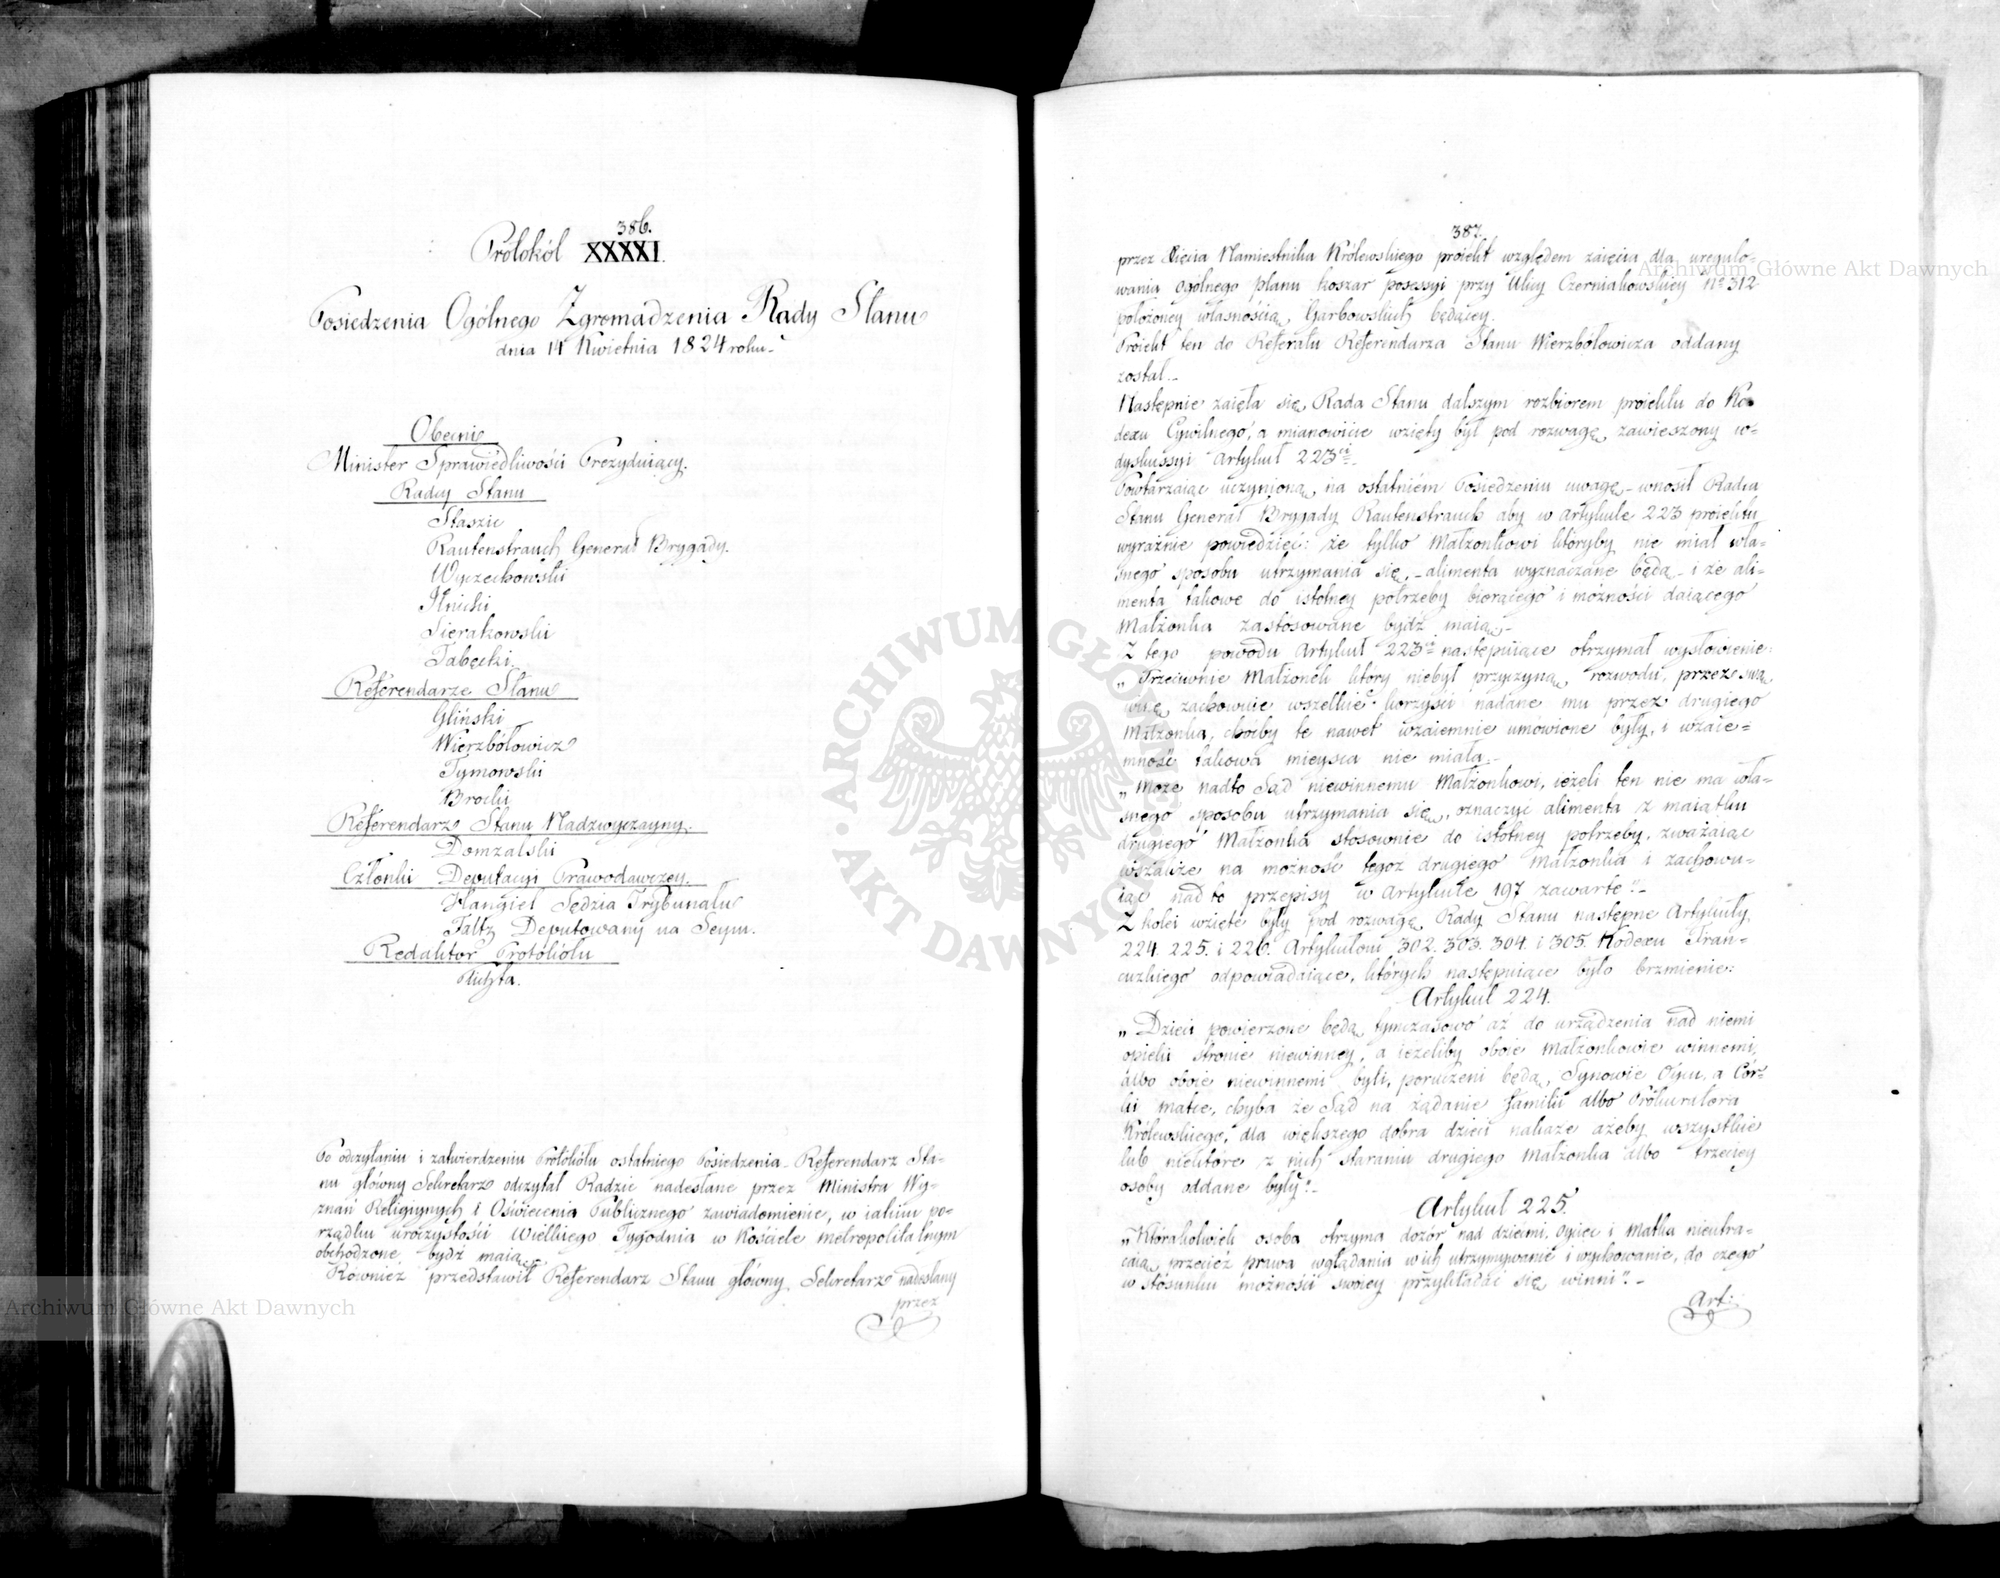 386.
Protokół XXXXI.
Posiedzenia Ogólnego Zgromadzenia Rady Stanu
dnia 14 Kwietnia 1824 roku.
Obecni
Minister Sprawiedliwości Prezyduiący.
Radcy Stanu
Staszic
Rautenstrauch Generał Brygady.
Wyczechowski
Ilnicki
Sierakowski
Tabęcki.
Referendarze Stanu
Gliński
Wierzbołowicz
Tymowski
Brocki
Referendarz Stanu Nadzwyczayny.
Domzalski
Członki Deputacyi Prawodawczey.
Hangiel Sędzia Trybunału
Faltz Deputowany na Seym.
Redaktor Protokółu
Pluszta.
Po odczytaniu i zatwierdzeniu Protokółu ostatniego Posiedzenia Referendarz Sta-
nu główny Sekretarz odczytał Radzie nadesłane przez Ministra Wy-
znań Religiynych i Oświecenia Publicznego zawiadomienie, w iakim po-
rządku uroczystości Wielkiego Tygodnia w Kościele metropolitalnym
obchodzone bydź maią.
Również przedstawił Referendarz Stanu główny Sekretarz nadesłany
przez
387.
przez Xięcia Namiestnika Królewskiego proiekt względem zaięcia dla uregulo-
wania ogólnego planu koszar possessyi przy Ulicy Czerniakowskiey No 312
położoney własnością Garbowskich będącey.
Proiekt ten do Referatu Referendarza Stanu Wierzbołowicza oddany
został.
Następnie zaięła się Rada Stanu dalszym rozbiorem proiektu do Ko-
dexu Cywilnego, a mianowicie wzięty był pod rozwagę zawieszony w
dyskussyi Artykuł 223ci.
Powtarzaiąc uczynioną na ostatniém Posiedzeniu uwagę wnosił Radca
Stanu Generał Brygady Rautenstrauch aby w Artykule 223 proiektu
wyraźnie powiedzieć: że tylko Małżonkowi któryby nie miał wła-
snego sposobu utrzymania się, alimenta wyznaczane będą i że ali-
menta takowe do istotney potrzeby biorącego i możności daiącego
Małżonka zastosowane bydź maią.
Z tego powodu Artykuł 223ci następuiące otrzymał wysłowienie:
„Przeciwnie Małżonek który niebył przyczyną rozwodu, przez swą
winę, zachowuie wszelkie korzyści nadane mu przez drugiego
Małżonka, chóćby te nawet wzaiemnie umówione były, i wzaie-
mność takowa mieysca nie miała.
„Może nadto Sąd niewinnemu Małżonkowi, ieżeli ten nie ma wła-
„snego sposobu utrzymania się, oznaczyć alimenta z maiątku
drugiego Małżonka stosownie do istotney potrzeby, zważaiąc
wszakże na możność tegoż drugiego Małżonka i zachowu-
iąc nadto przepisy w Artykule 197 zawarte".
Z kolei wzięte były pod rozwagę Rady Stanu następne Artykuły
224. 225. i 226. Artykułom 302. 303. 304. i 305. Kodexu Fran-
cuzkiego odpowiadaiące, których następuiące było brzmienie:
Artykuł 224.
„Dzieci powierzone będą tymczasowo aż do urządzenia nad niemi
opieki stronie niewinney, a ieżeliby oboie Małżonkowie winnemi,
albo oboie niewinnemi byli, poruczeni będą, Synowie Oycu, a Cór-
ki matce, chyba że Sąd na żądanie familii albo Prókuratora
Królewskiego, dla większego dobra dzieci nakaże ażeby wszystkie
lub niektóre z nich staraniu drugiego Małżonka albo trzeciey
osoby oddane były".
Artykuł 225.
„Którakolwiek osoba otrzyma dozór nad dziećmi, Oyciec i Matka nieutra-
caią przecież prawa wglądania w ich utrzymywanie i wychowanie, do czego
w stósunku możności swoiey przykładać się winni".
Art:
Archiwum Główne Akt Dawnych
Archiwum Główne Akt Dawnych
ARCHIWUM GŁÓWNE AKT DAWNYCH